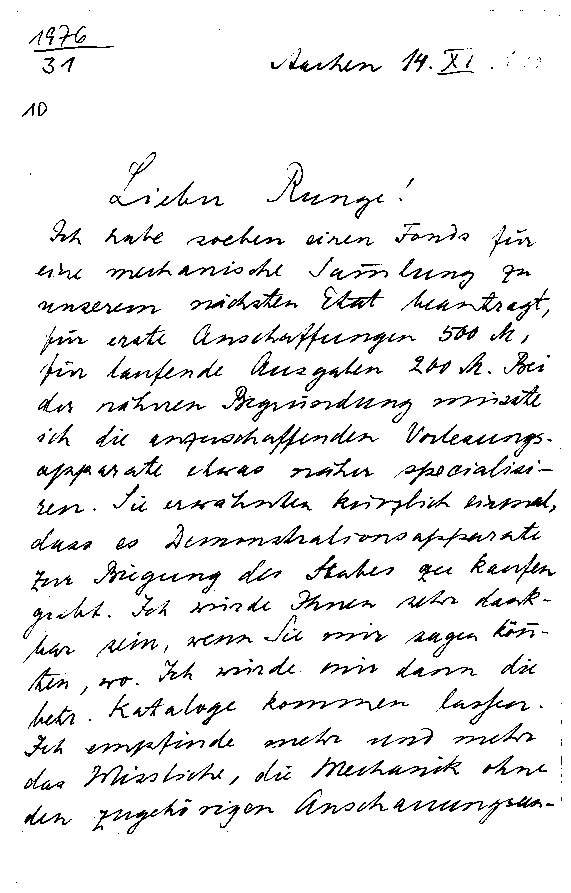 1976
31
Aachen 14. XI.
10
Lieber Runge!
Ich habe soeben einen Fonds für
eine mechanische Sam̅lung zu
unserem nächsten Etat beantragt,
für erste Anschaffungen 500 M,
für laufende Ausgaben 200 M. Bei
der näheren Begründung müsste
ich die anzuschaffenden Vorlesungs-
apparate etwas näher specialisi-
ren. Sie erwähnten kürzlich einmal,
dass es Demonstrationsapparate
zur Biegung des Stabes zu kaufen
giebt. Ich würde Ihnen sehr dank-
bar sein, wenn Sie mir sagen kön̅-
ten, wo. Ich würde mir dann die
betr. Kataloge kommen lassen.
Ich empfinde mehr und mehr
das Missliche, die Mechanik ohne
den zugehörigen Anschauungsun-